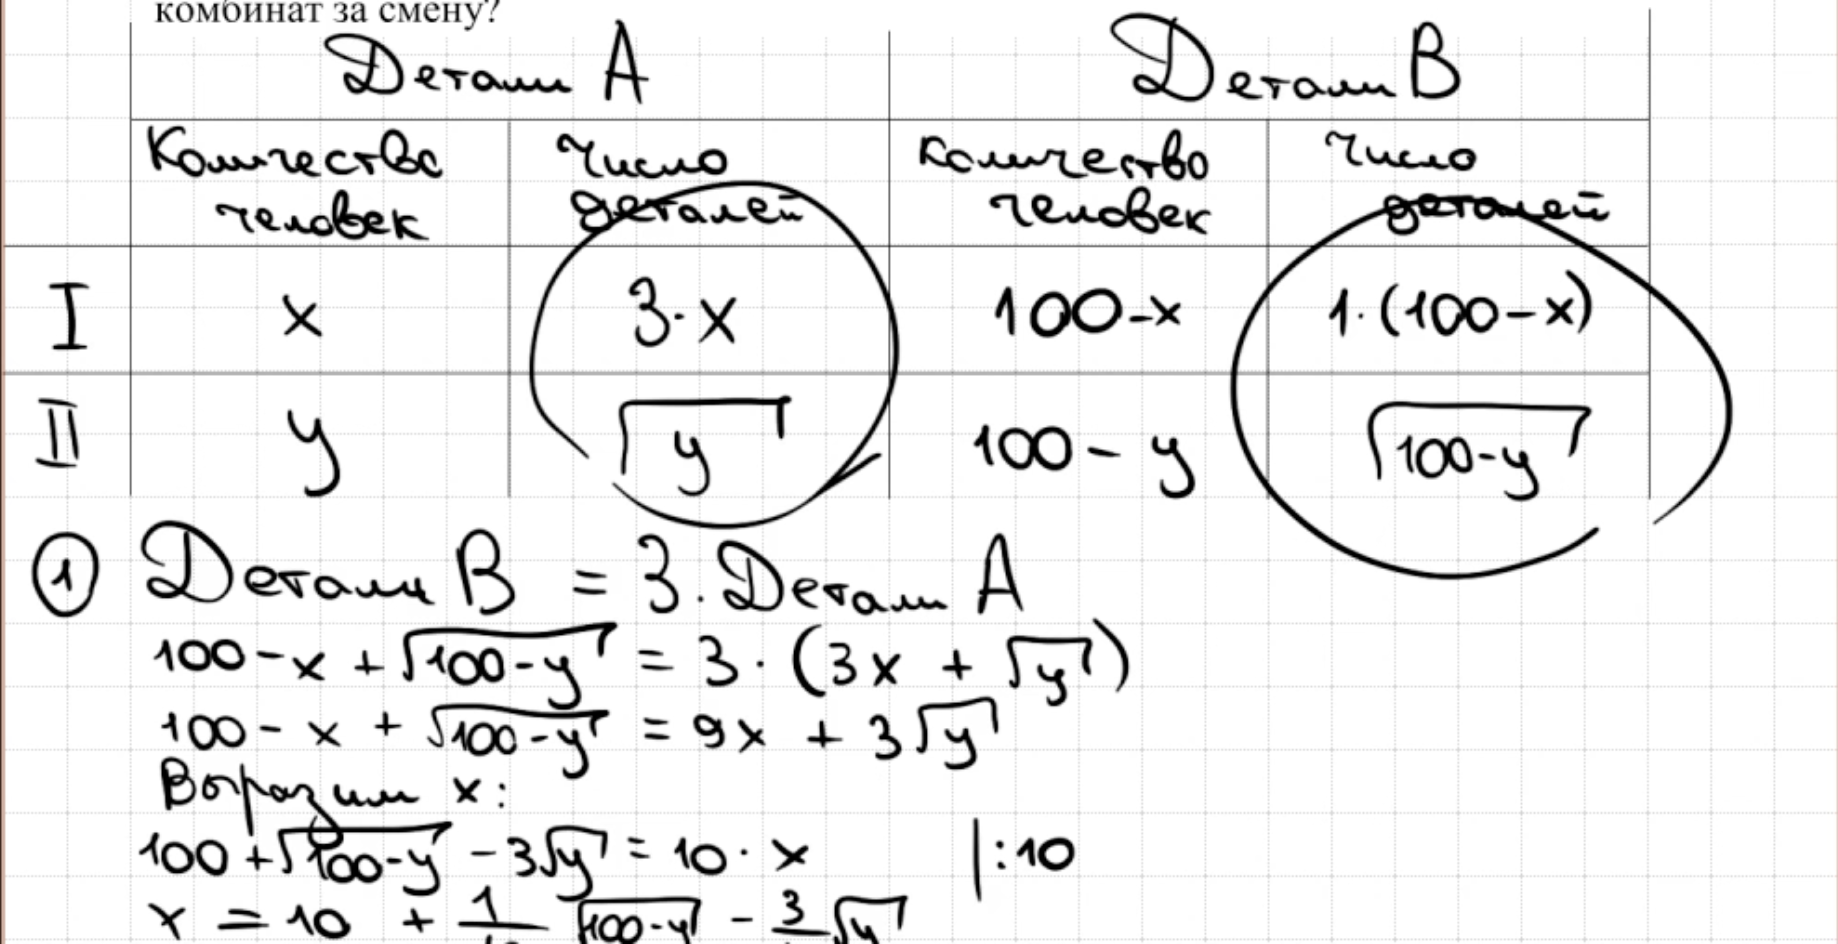 комбинат за смену?
Детали А Детали В
Количество человек Число деталей Количество человек Число деталей
I x 3·x 100-x 1·(100-x)
II y √y 100-y √100-y
① Детали В = 3·Детали А
100-x + √100-y = 3·(3x + √y)
100-x + √100-y = 9x + 3√y
Выразим x:
100+√100-y -3√y = 10·x |:10
x = 10 + 1/ √100-y - 3/ √y